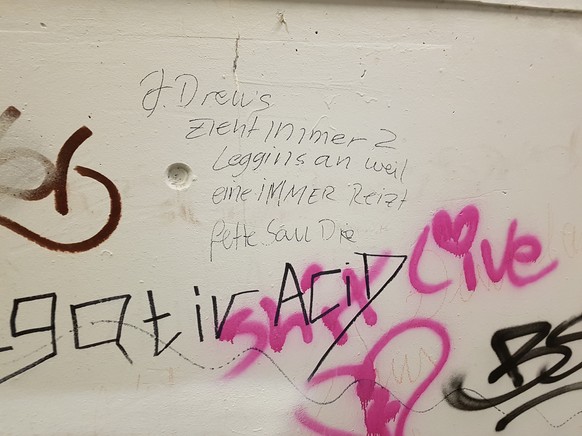 J. Drews
zieht immer 2
Leggins an weil
eine IMMER Reizt
fette Sau Die
Live
ACiD
BS